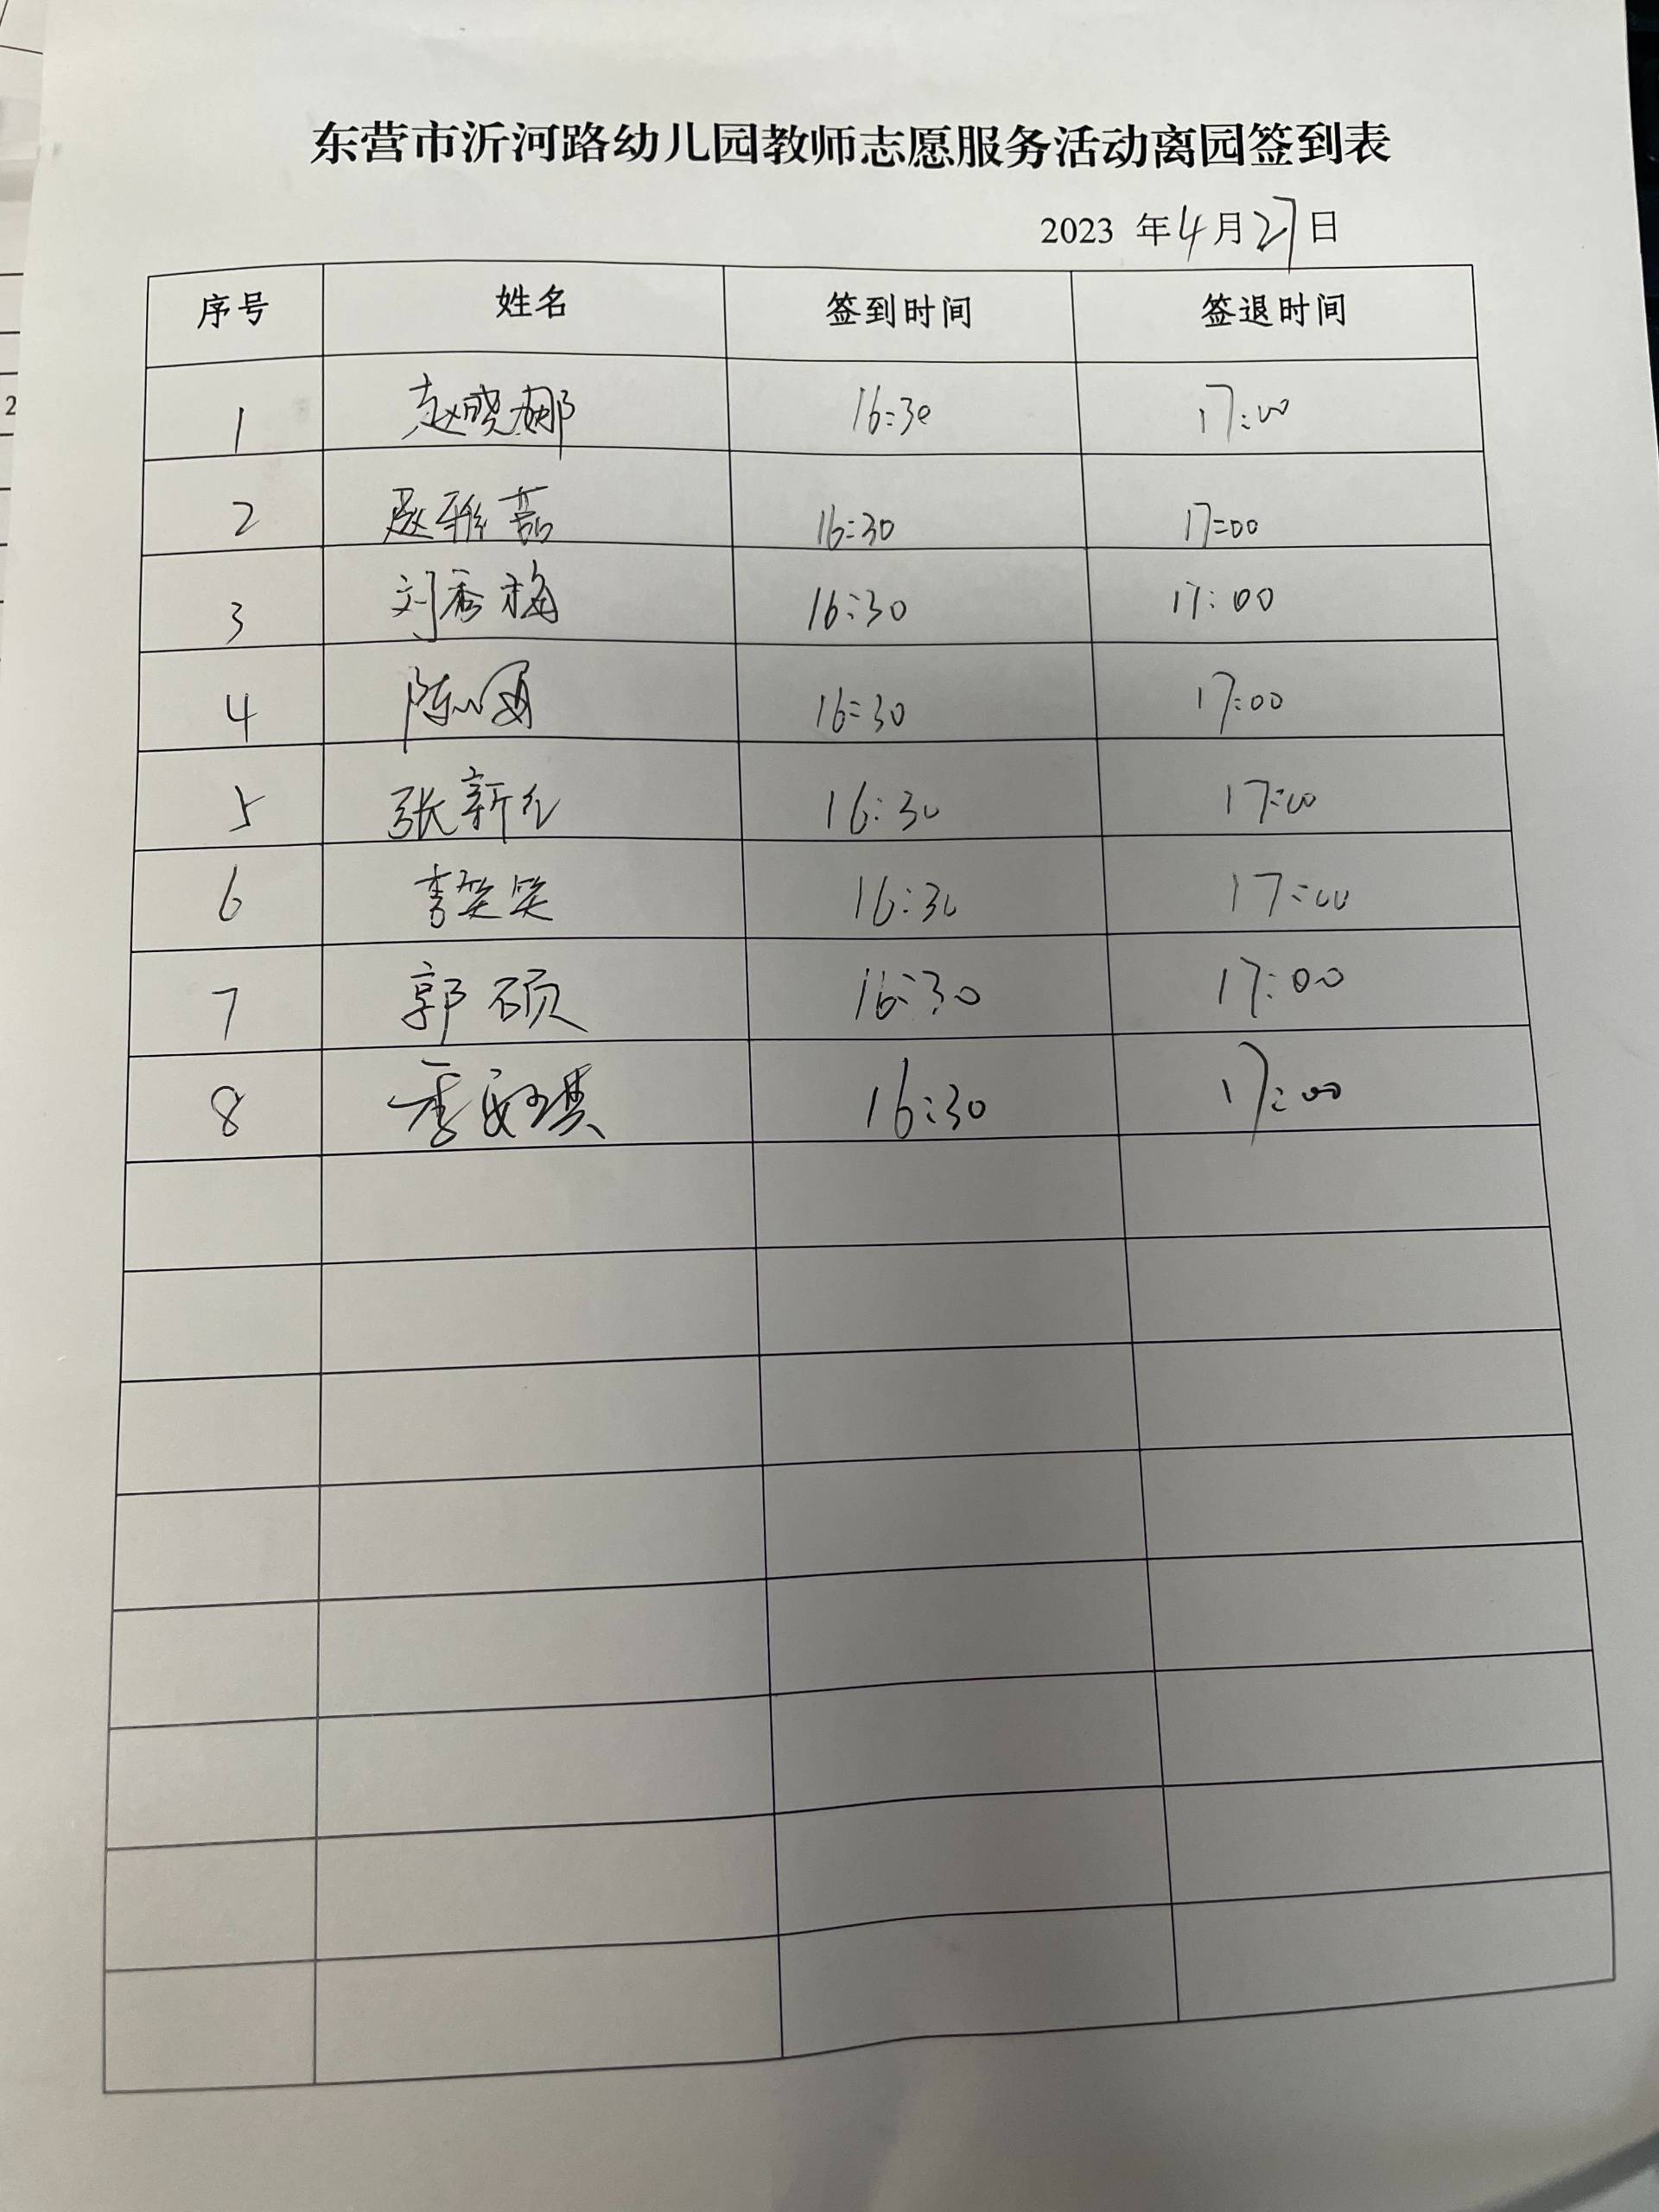 东营市沂河路幼儿园教师志愿服务活动离园签到表
2023 年4月27日
序号 姓名 签到时间 签退时间
1 赵晓娜 16:30 17:00
2 赵雅茹 16:30 17:00
3 刘秀梅 16:30 17:00
4 陈 16:30 17:00
5 张新 16:30 17:00
6 李笑笑 16:30 17:00
7 郭硕 16:30 17:00
8 季 琪 16:30 17:00
2